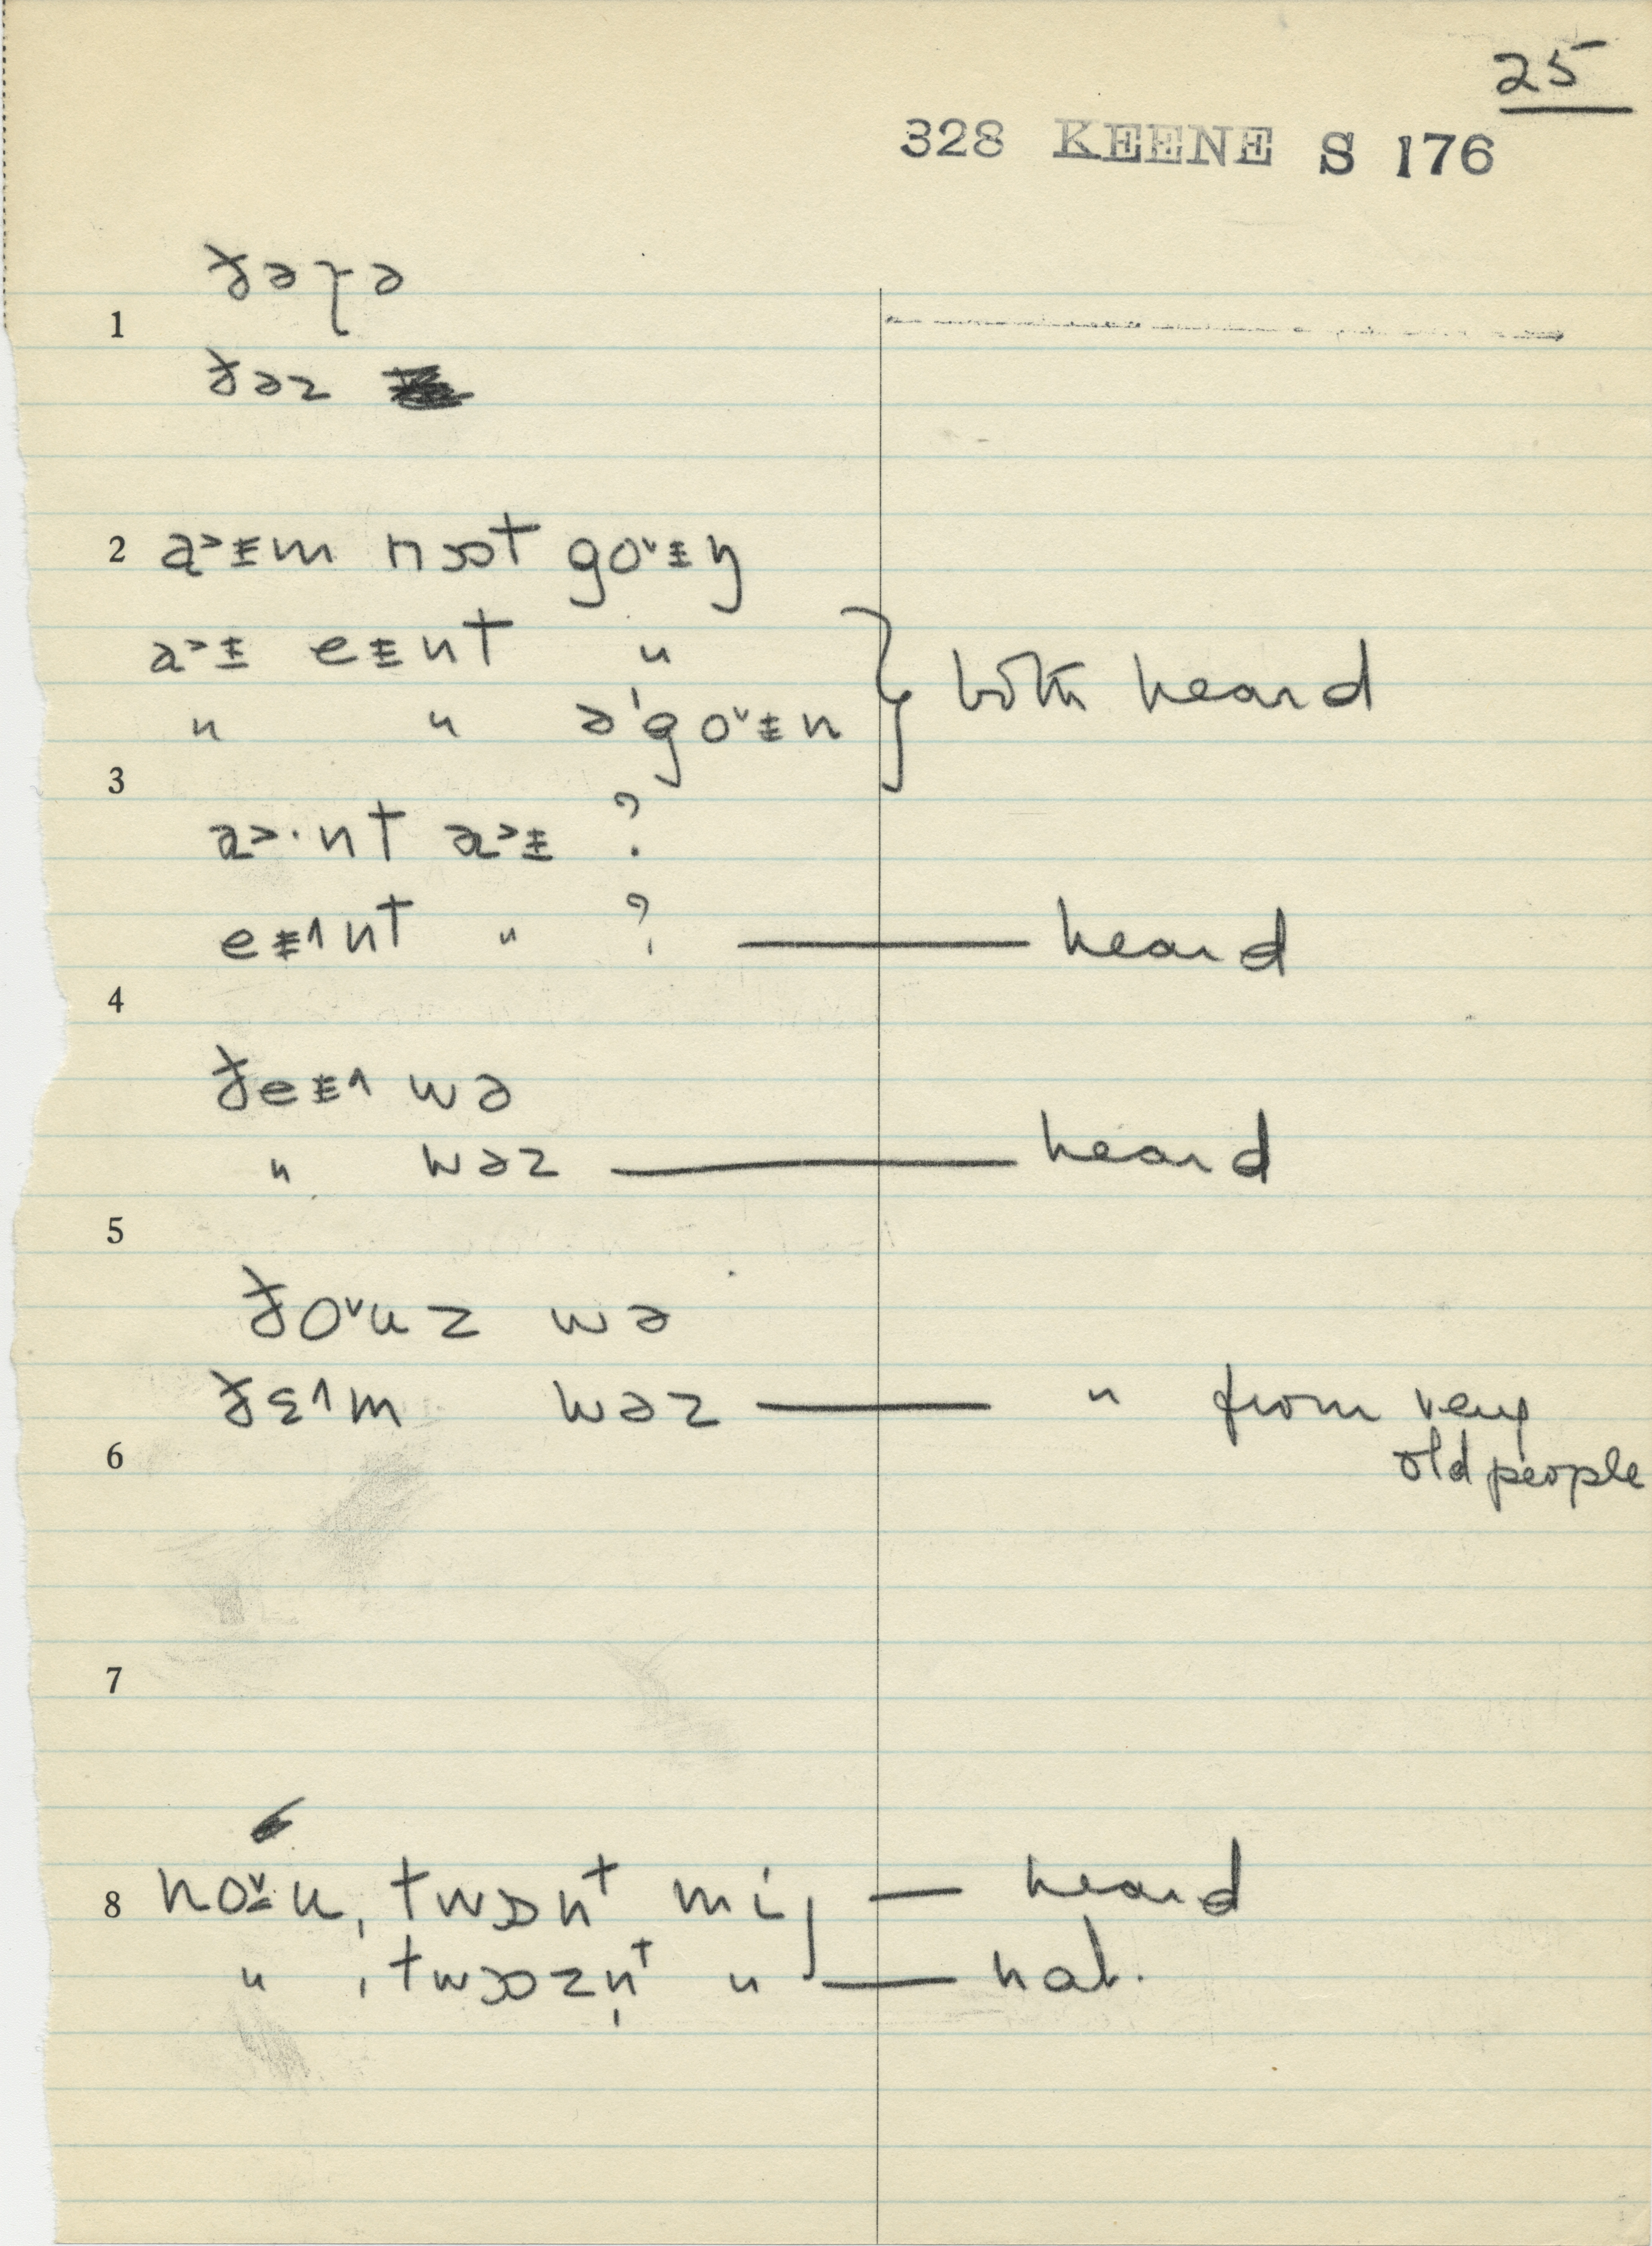 25
328 KEENE S 176
1
ðəɼə
ðəz
2 a˃ɨm nɒt go˅ɨŋ
a˃ɨ eɨnt "
" " əˈgo˅ɨn } both heard
3
a˃·nt a˃ɨ ?
eɨ˄nt " ? — heard
4
ðeɨ˄ wə
" wəz — heard
5
ðo˅uz wə
ðɛ˄m wəz — " from very
old people
6
7
8 no˅u, twɒnt mi — heard
" , twɒzn̩t " — nat.